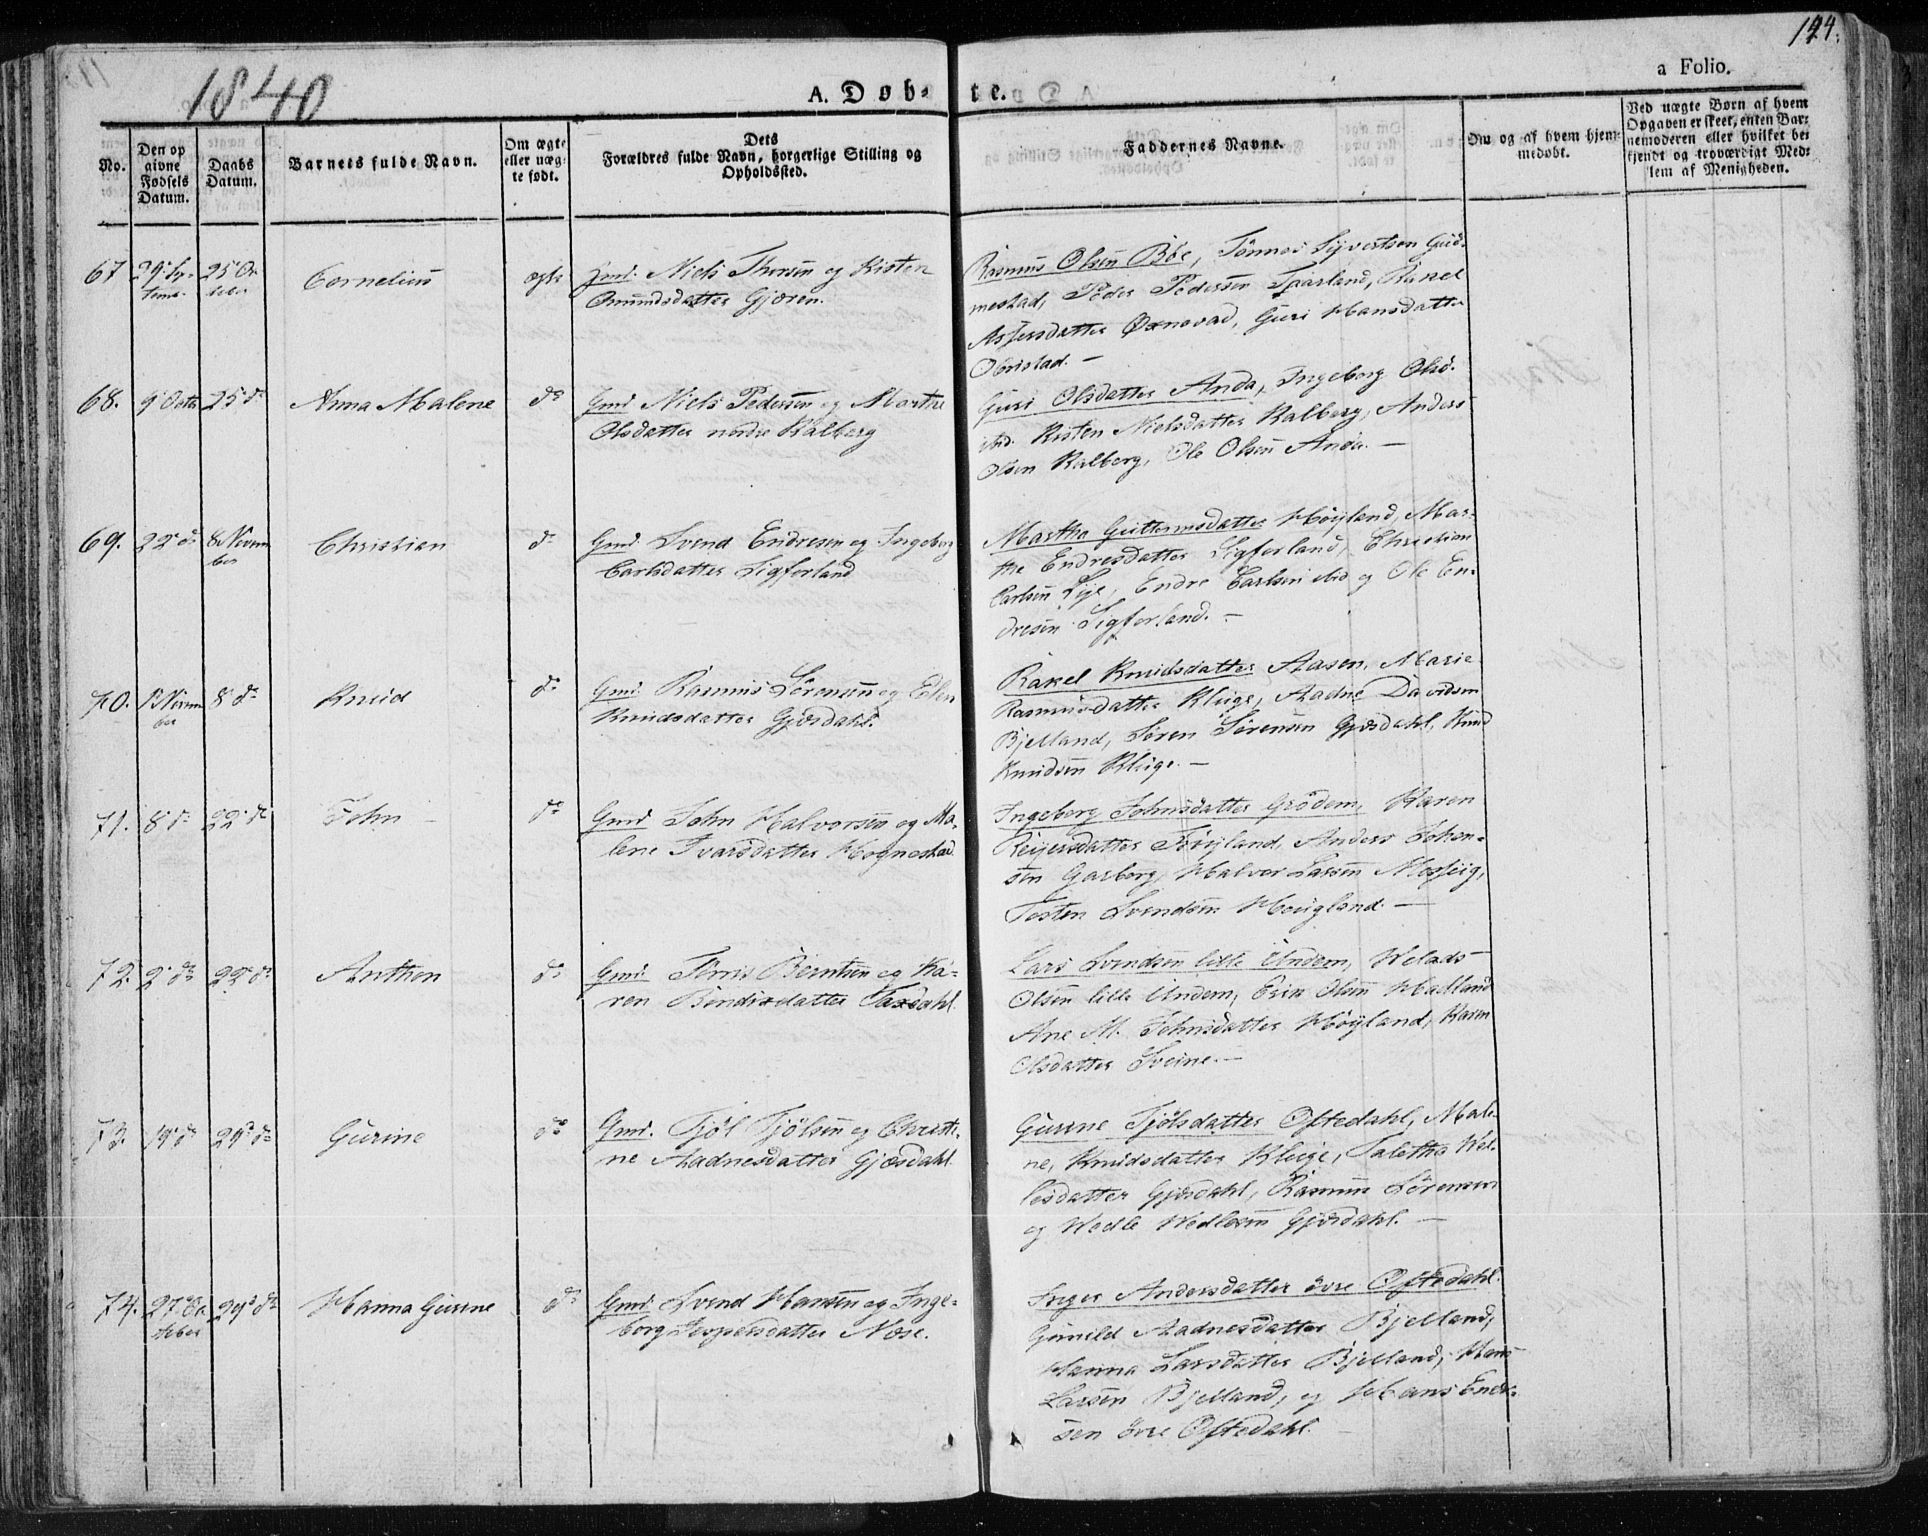 1840
A. Døb-
te.
a Folio.
124.
No.
Den op
givne
Fødsels
Datum.
Daabs
Datum.
Barnets fulde Navn.
Om ægte
eller uæg-
te født.
Dets
Forældres fulde Navn, borgerlige Stilling og
Opholdssted.
Faddernes Navne.
Om og af hvem hjem-
medøbt.
Ved uægte Børn af hvem
Opgaven er skeet, enten Bar-
nemoderen eller hvilket be
kjendt og troværdigt Med-
lem af Menigheden.
67 29 Sep-
tember 25 Oc-
tober Cornelius ægte Gmd. Niels Thorsen og Kisten
Omundsdatter Gjæren.
Rasmus Olsen Böe, Tönnes Syvertsen Gud-
mestad, Peder Pedersen Taarland, Rakel
Assersdatter Øxnavad, Guri Hansdatter
Obristad. -
68. 9 Octr 25 do Anna Malene do Gmd. Niels Pedersen og Marthe
Olsdatter nedre Kalberg
Guri Olsdatter Anda, Ingeborg Olsd.
ibid. Kisten Nielsdatter Kalberg, Anders
Olsen Kalberg, Ole Olsen Anda. -
69. 22 do 8 Novem
ber Christian do Gmd. Svend Endresen og Ingeborg
Carlsdatter Sigferland
Martha Guttormsdatter Höyland, Mar-
the Endresdatter Sigferland, Christian
Carlsen Lye, Endre Carlsen ibid og Ole En-
dresen Sigferland. -
70. 1 Novem
ber 8 do Knud do Gmd. Rasmus Sörensen og Elen
Knudsdatter Gjæsdahl.
Rakel Knudsdatter Aasen, Marie
Rasmusdatter Kluge, Aadne Davidsen
Bjelland, Sören Sörensen Gjæsdahl, Knud
Knudsen Kluge. -
71. 8 do 22 do John do Gmd. John Halvorsen og Ma-
lene Ivarsdatter Hognestad
Ingeborg Johnsdatter Grödem, Karen
Reyersdatter Töyland, Anders Johan-
sen Garborg, Halvor Larsen Mossige,
Tosten Svendsen Hougland. -
72. 2 do 22 do Anthon do Gmd. Törris Berntsen og Ka-
ren Bendixdatter Taxdahl.
Lars Svendsen lille Undem, Velads
Olsen lille Undem, Erik Olsen Halland
Ane M. Johnsdatter Höyland, Karen
Olsdatter Sveine. -
73. 19 do 29 do Gurine do Gmd. Tjöl Tjölsen og Christi-
ne Aadnesdatter Gjæsdahl.
Gurine Tjölsdatter Oftedahl, Male-
ne, Knudsdatter Kluge, Taletha Vel-
lesdatter Gjæsdahl, Rasmus Sörensen
og Vedle Vedlesen Gjæsdahl. -
74. 27 Oc-
tober 29 do Hanna Gurine do Gmd. Svend Hansen og Inge-
borg Jespersdatter Næse.
Inger Andersdatter övre Oftedahl.
Gunild Aadnesdatter Bjelland,
Hanna Larsdatter Bjelland, Hans
Larsen Bjelland, og Hans Endr-
sen övre Oftedahl.